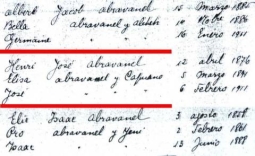 Albert Jacob Abravanel 15 Marzo 1885
Bella Abravanel y 10 Nobe 1886
Germaine " " " 16 Enero 1911
Henri José Abravanel 12 abril 1876
Elisa Abravanel y Capuano 5 Marzo 1891
José " " " 6 Febrero 1911
Elie Isaac Abravanel 3 agosto 1858
Oro Abravanel y Yeni 2 Febrero 1861
Isaac " " 13 Junio 1888